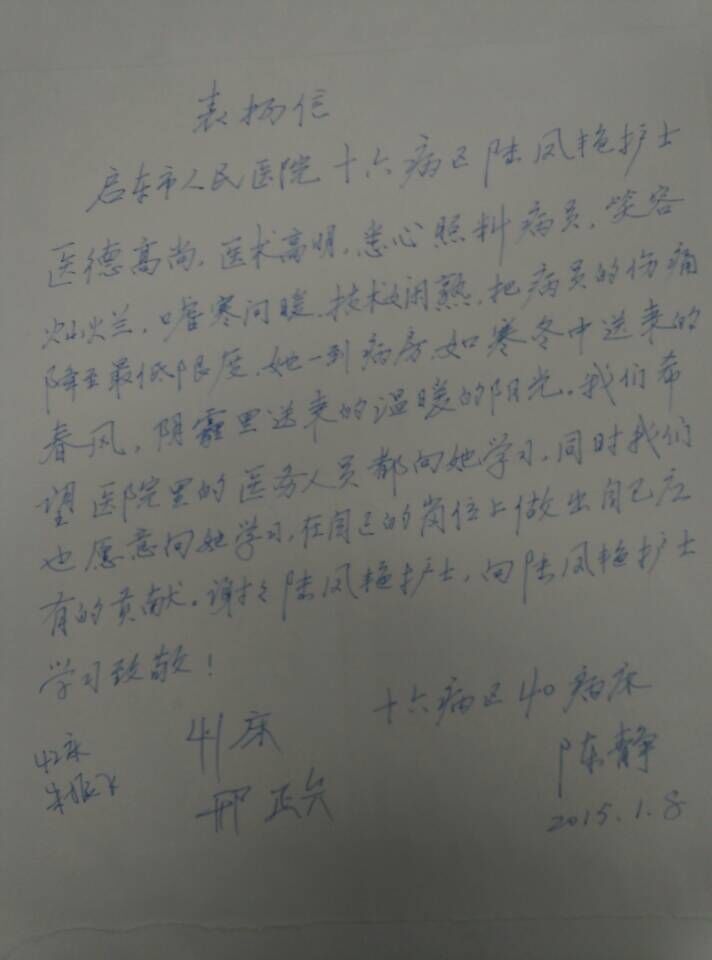 表扬信
启东市人民医院十六病区陆凤艳护士
医德高尚,医术高明,悉心照料病员,笑容
灿烂,嘘寒问暖,技术娴熟,把病员的伤痛
降至最低限度,她一到病房,如寒冬中送来的
春风,阴霾里送来的温暖的阳光。我们希
望医院里的医务人员都向她学习,同时我们
也愿意向她学习,在自己的岗位上做出自己应
有的贡献。谢谢陆凤艳护士,向陆凤艳护士
学习致敬!
十六病区40病床
陈静
2015.1.8
41床
邢正
42床